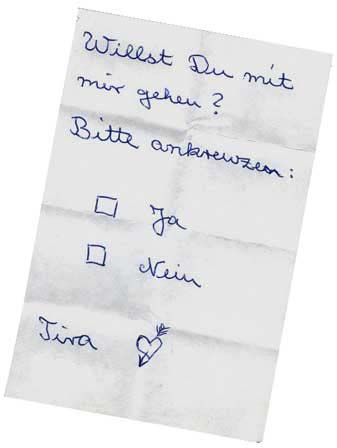 Willst Du mit
mir gehen?
Bitte ankreuzen:
☐ Ja
☐ Nein
Tira